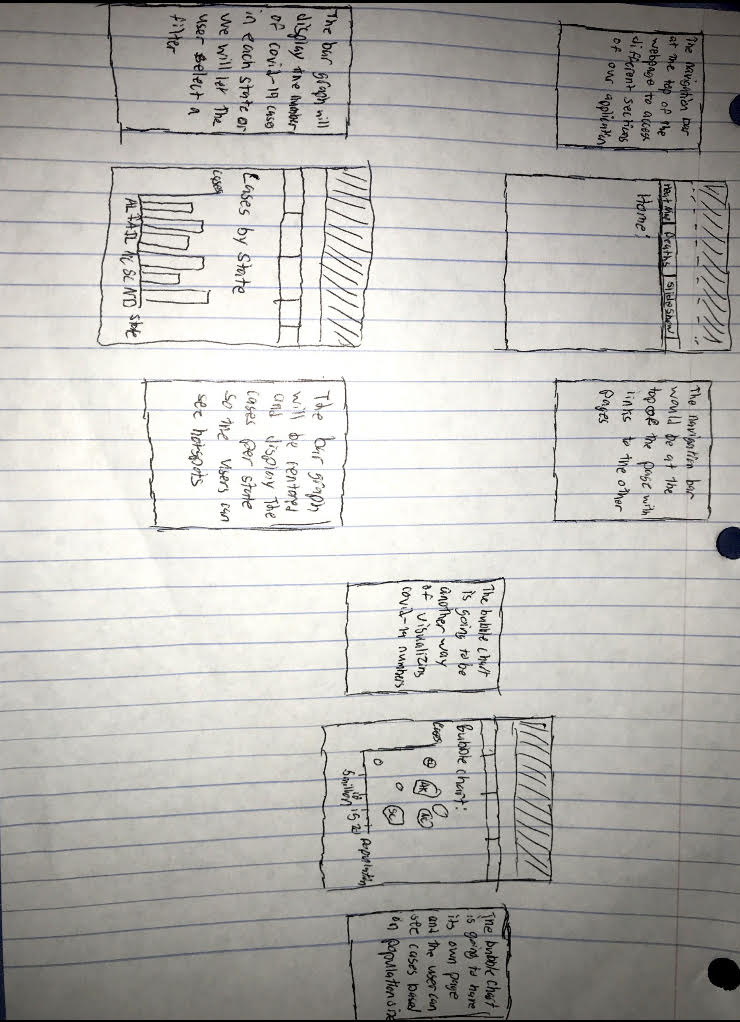 The navigation bar
at the top of the
webpage to access
different sections
of our application
Heat Map Deaths Slideshow
Home:
The navigation bar
would be at the
top of the page with
links to the other
pages
The bubble chart
is going to be
another way
of visualizing
covid-19 numbers
Bubble chart:
cases
AK
NC
SC
population
5 million 15
The bubble chart
is going to have
its own page
and the user can
see cases based
on population size
The bar graph will
display the number
of covid-19 cases
in each state or
we will let the
user select a
filter
Cases by State
cases
AL IL NC SC ND State
The bar graph
will be centored
and display The
cases per state
so the Users can
see hotspots